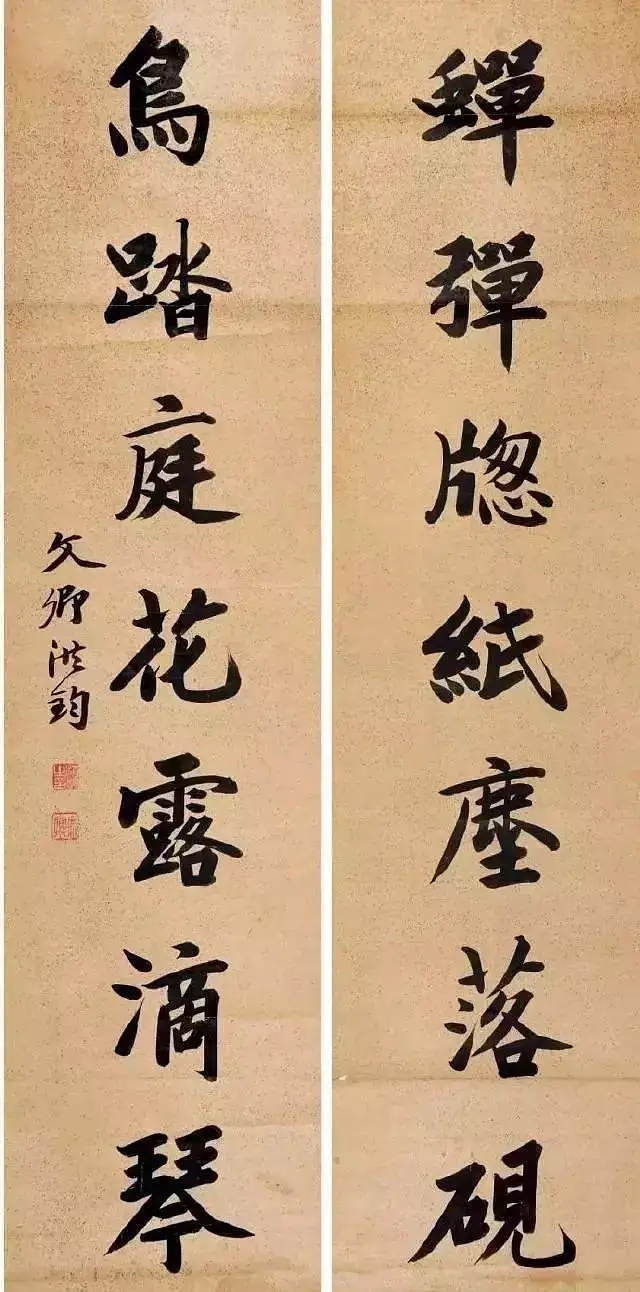 蟬彈牕紙塵落硯
鳥踏庭花露滴琴
文卿洪鈞